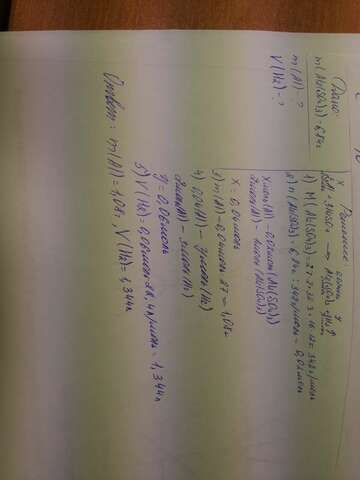 Дано:
m(Al2(SO4)3) = 6,84г
m(Al) - ?
V(H2) - ?
Решение
x 0,02м y
2Al + 3H2SO4 → Al2(SO4)3 + 3H2↑
1) M(Al2(SO4)3) = 27·2+32·3+16·12 = 342г/моль
2) n(Al2(SO4)3) = 6,84г : 342г/моль = 0,02моль
x моль(Al) - 0,02моль(Al2(SO4)3)
2моль(Al) - 1моль(Al2(SO4)3)
x = 0,04моль
3) m(Al) = 0,04моль · 27 = 1,08г
4) 0,04(Al) - y моль(H2)
2моль(Al) - 3моль(H2)
y = 0,06моль
5) V(H2) = 0,06моль · 22,4л/моль = 1,344л
Ответ: m(Al) = 1,08г, V(H2) = 1,344л